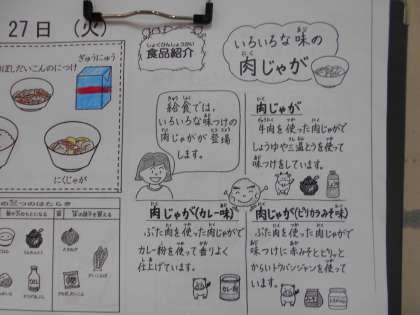 27日 (火)
しょくひんしょうかい
食品紹介
いろいろな味の
肉じゃが
ぎゅうにゅう
ぼしだいこんのにつけ
にくじゃが
給食では、
いろいろな味つけの
肉じゃがが登場
します。
肉じゃが
牛肉を使った肉じゃがで
しょうゆや三温とうを使って
味つけをしています。
肉じゃが(カレー味)
ぶた肉を使った肉じゃがで
カレー粉を使って香りよく
仕上げています。
肉じゃが(ピリカラみそ味)
ぶた肉を使った肉じゃがで
味つけに赤みそとピリッと
からいトウバンジャンを使って
います。